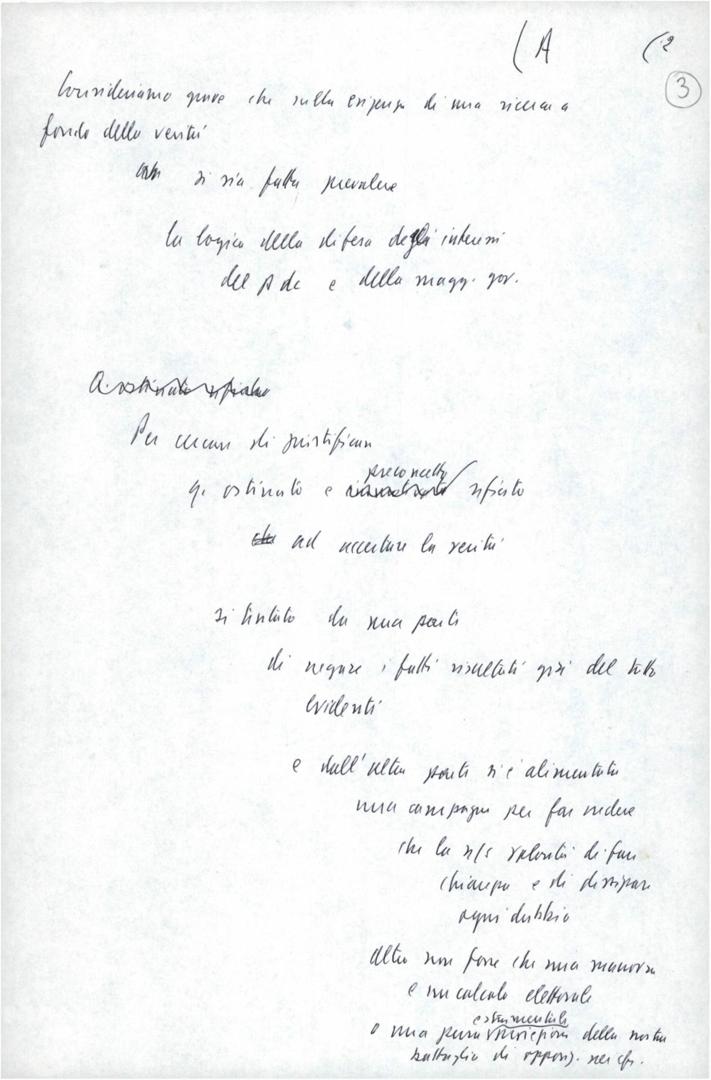 (A (2
3
Consideriamo grave che sulla esigenza di una ricerca a
fondo della verità
si sia fatta prevalere
la logica della difesa degli interessi
del p dc e della magg. gov.
Per cercare di giustificare
q. ostinato e preconcetto rifiuto
ad accertare la verità
si tentato da una parte
di negare i fatti risultati già del tutto
evidenti
e dall'altra parte si è alimentata
una campagna per far credere
che la n/s volontà di fare
chiarezza e di dissipare
ogni dubbio
altro non fosse che una manovra
e un calcolo elettorale
o una pura e strumentale della nostra
battaglia di oppos.